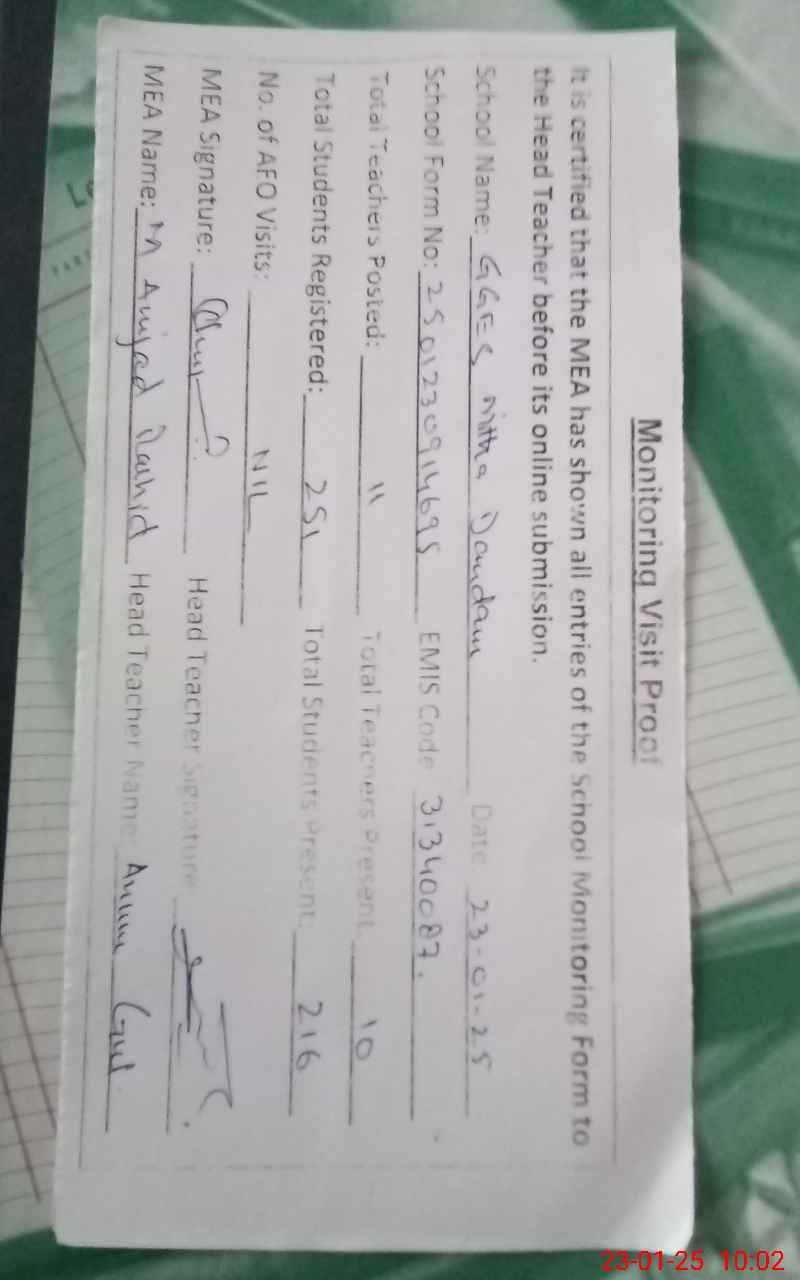 Monitoring Visit Proof
It is certified that the MEA has shown all entries of the School Monitoring Form to
the Head Teacher before its online submission.
School Name: GGES Mitha Dandam Date 23-01-25
School Form No: 250123091469S EMIS Code 31340087.
Total Teachers Posted: 11 Total Teachers Present: 10
Total Students Registered: 251 Total Students Present: 216
No. of AFO Visits: NIL
MEA Signature: Head Teacher Signature
MEA Name: M Amjad Rashid Head Teacher Name: Gul.
23-01-25 10:02